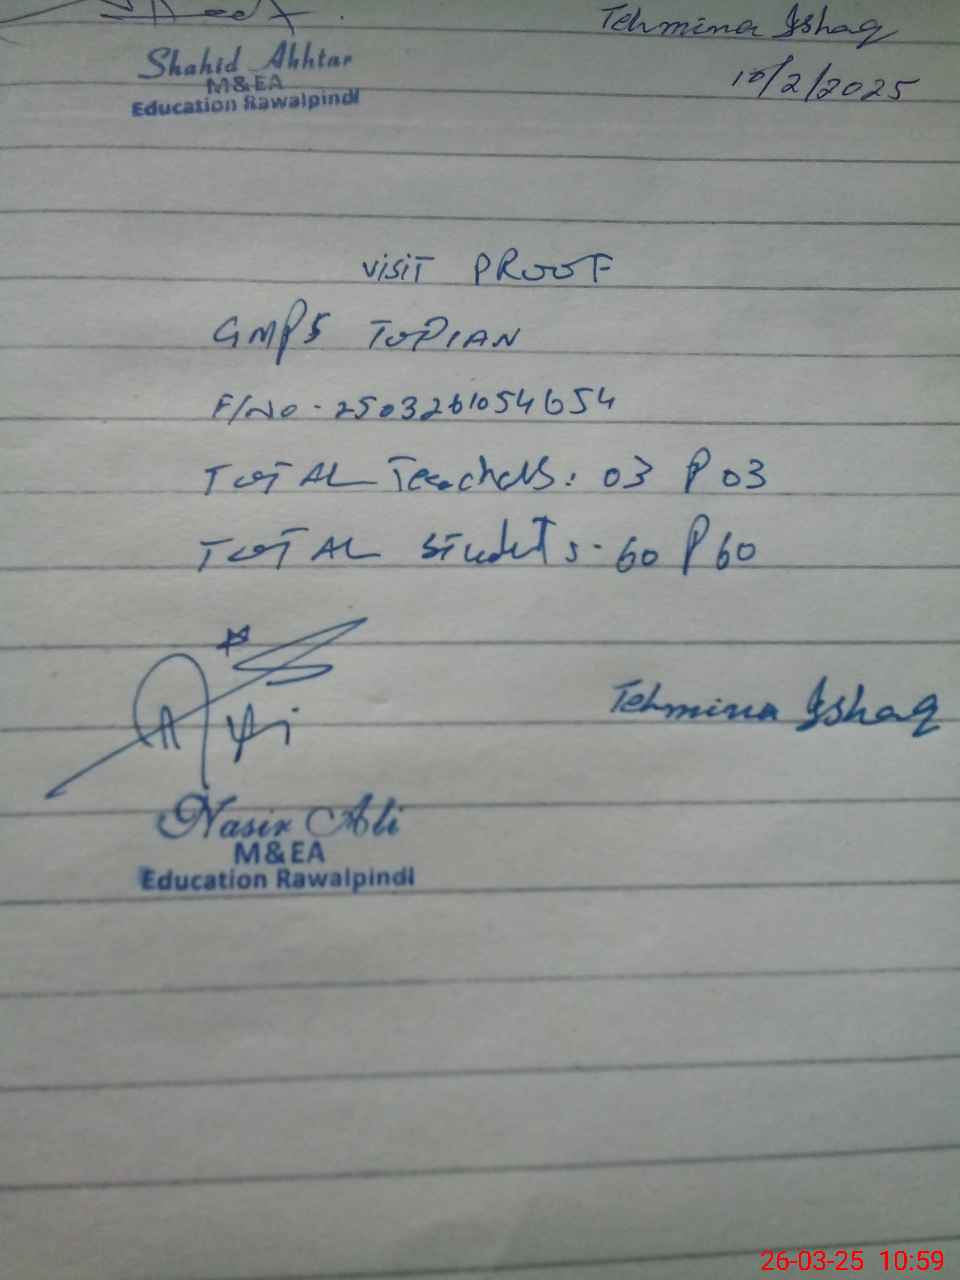 Tehmina Ishaq
Shahid Akhtar
M&EA
Education Rawalpindi
10/2/2025
visit PROOF
GMPS TOPIAN
F/NO. 2503261054654
TOTAL Teachers: 03 P 03
TOTAL Students. 60 P 60
Tehmina Ishaq
Nasir Ali
M&EA
Education Rawalpindi
26-03-25 10:59